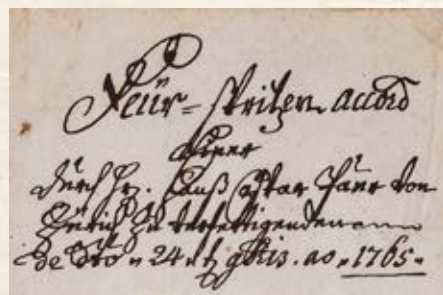 Feür-spritzen accord
Einer
durch Hr. Hanß Caspar Fäne von
Zürich zu verfertigenden
de dto 24 t. 9bris. ao. 1765.